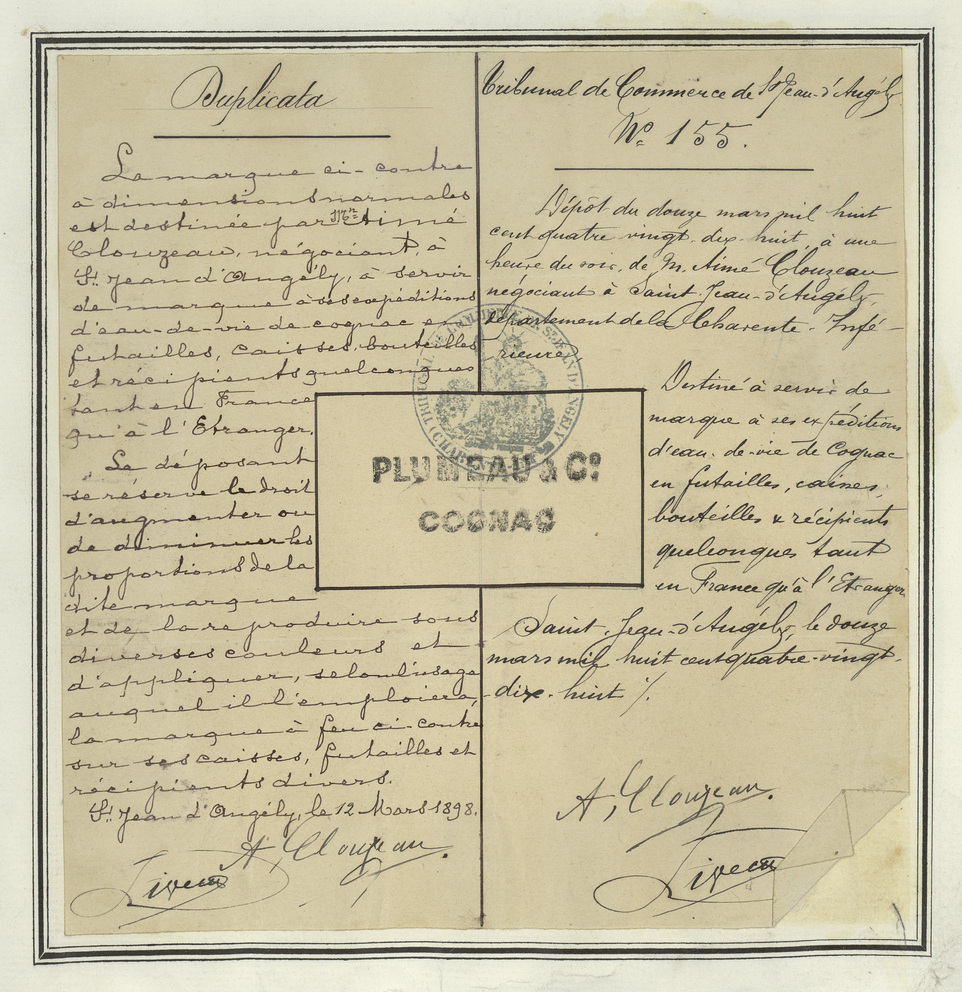 Duplicata
La marque ci-contre
à dimensions normales
est destinée par Mr Aimé
Clouzeau, négociant, à
St Jean d'Angély, à servir
de marque à ses expéditions
d'eau-de-vie de cognac en
futailles, caisses, bouteilles
et récipients quelconques
tant en France
qu'à l'Etranger.
Le déposant
se réserve le droit
d'augmenter ou
de diminuer les
proportions de la
dite marque
et de la reproduire sous
diverses couleurs et
d'appliquer, selon l'usage
auquel il l'emploiera,
la marque à feu ci-contre
sur ses caisses, futailles et
récipients divers.
St Jean d'Angély, le 12 Mars 1898.
A, Clouzeau.
Tribunal de Commerce de St Jean-d'Angély
No 155.
Dépôt du douze mars mil huit
cent quatre vingt dix huit, à une
heure du soir, de M. Aimé Clouzeau
négociant à Saint-Jean-d'Angély,
département de la Charente-Infé-
rieure
Destiné à servir de
marque à ses expéditions
d'eau-de-vie de Cognac
en futailles, caisses,
bouteilles & récipients
quelconques tant
en France qu'à l'Etranger
Saint-Jean-d'Angély, le douze
mars mil huit cent quatre-vingt-
dix-huit ./.
A, Clouzeau.
PLUMEAU & Co
COGNAC